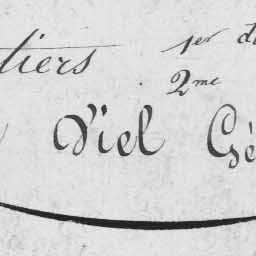 tiers 1er d
2me
Viel Gé